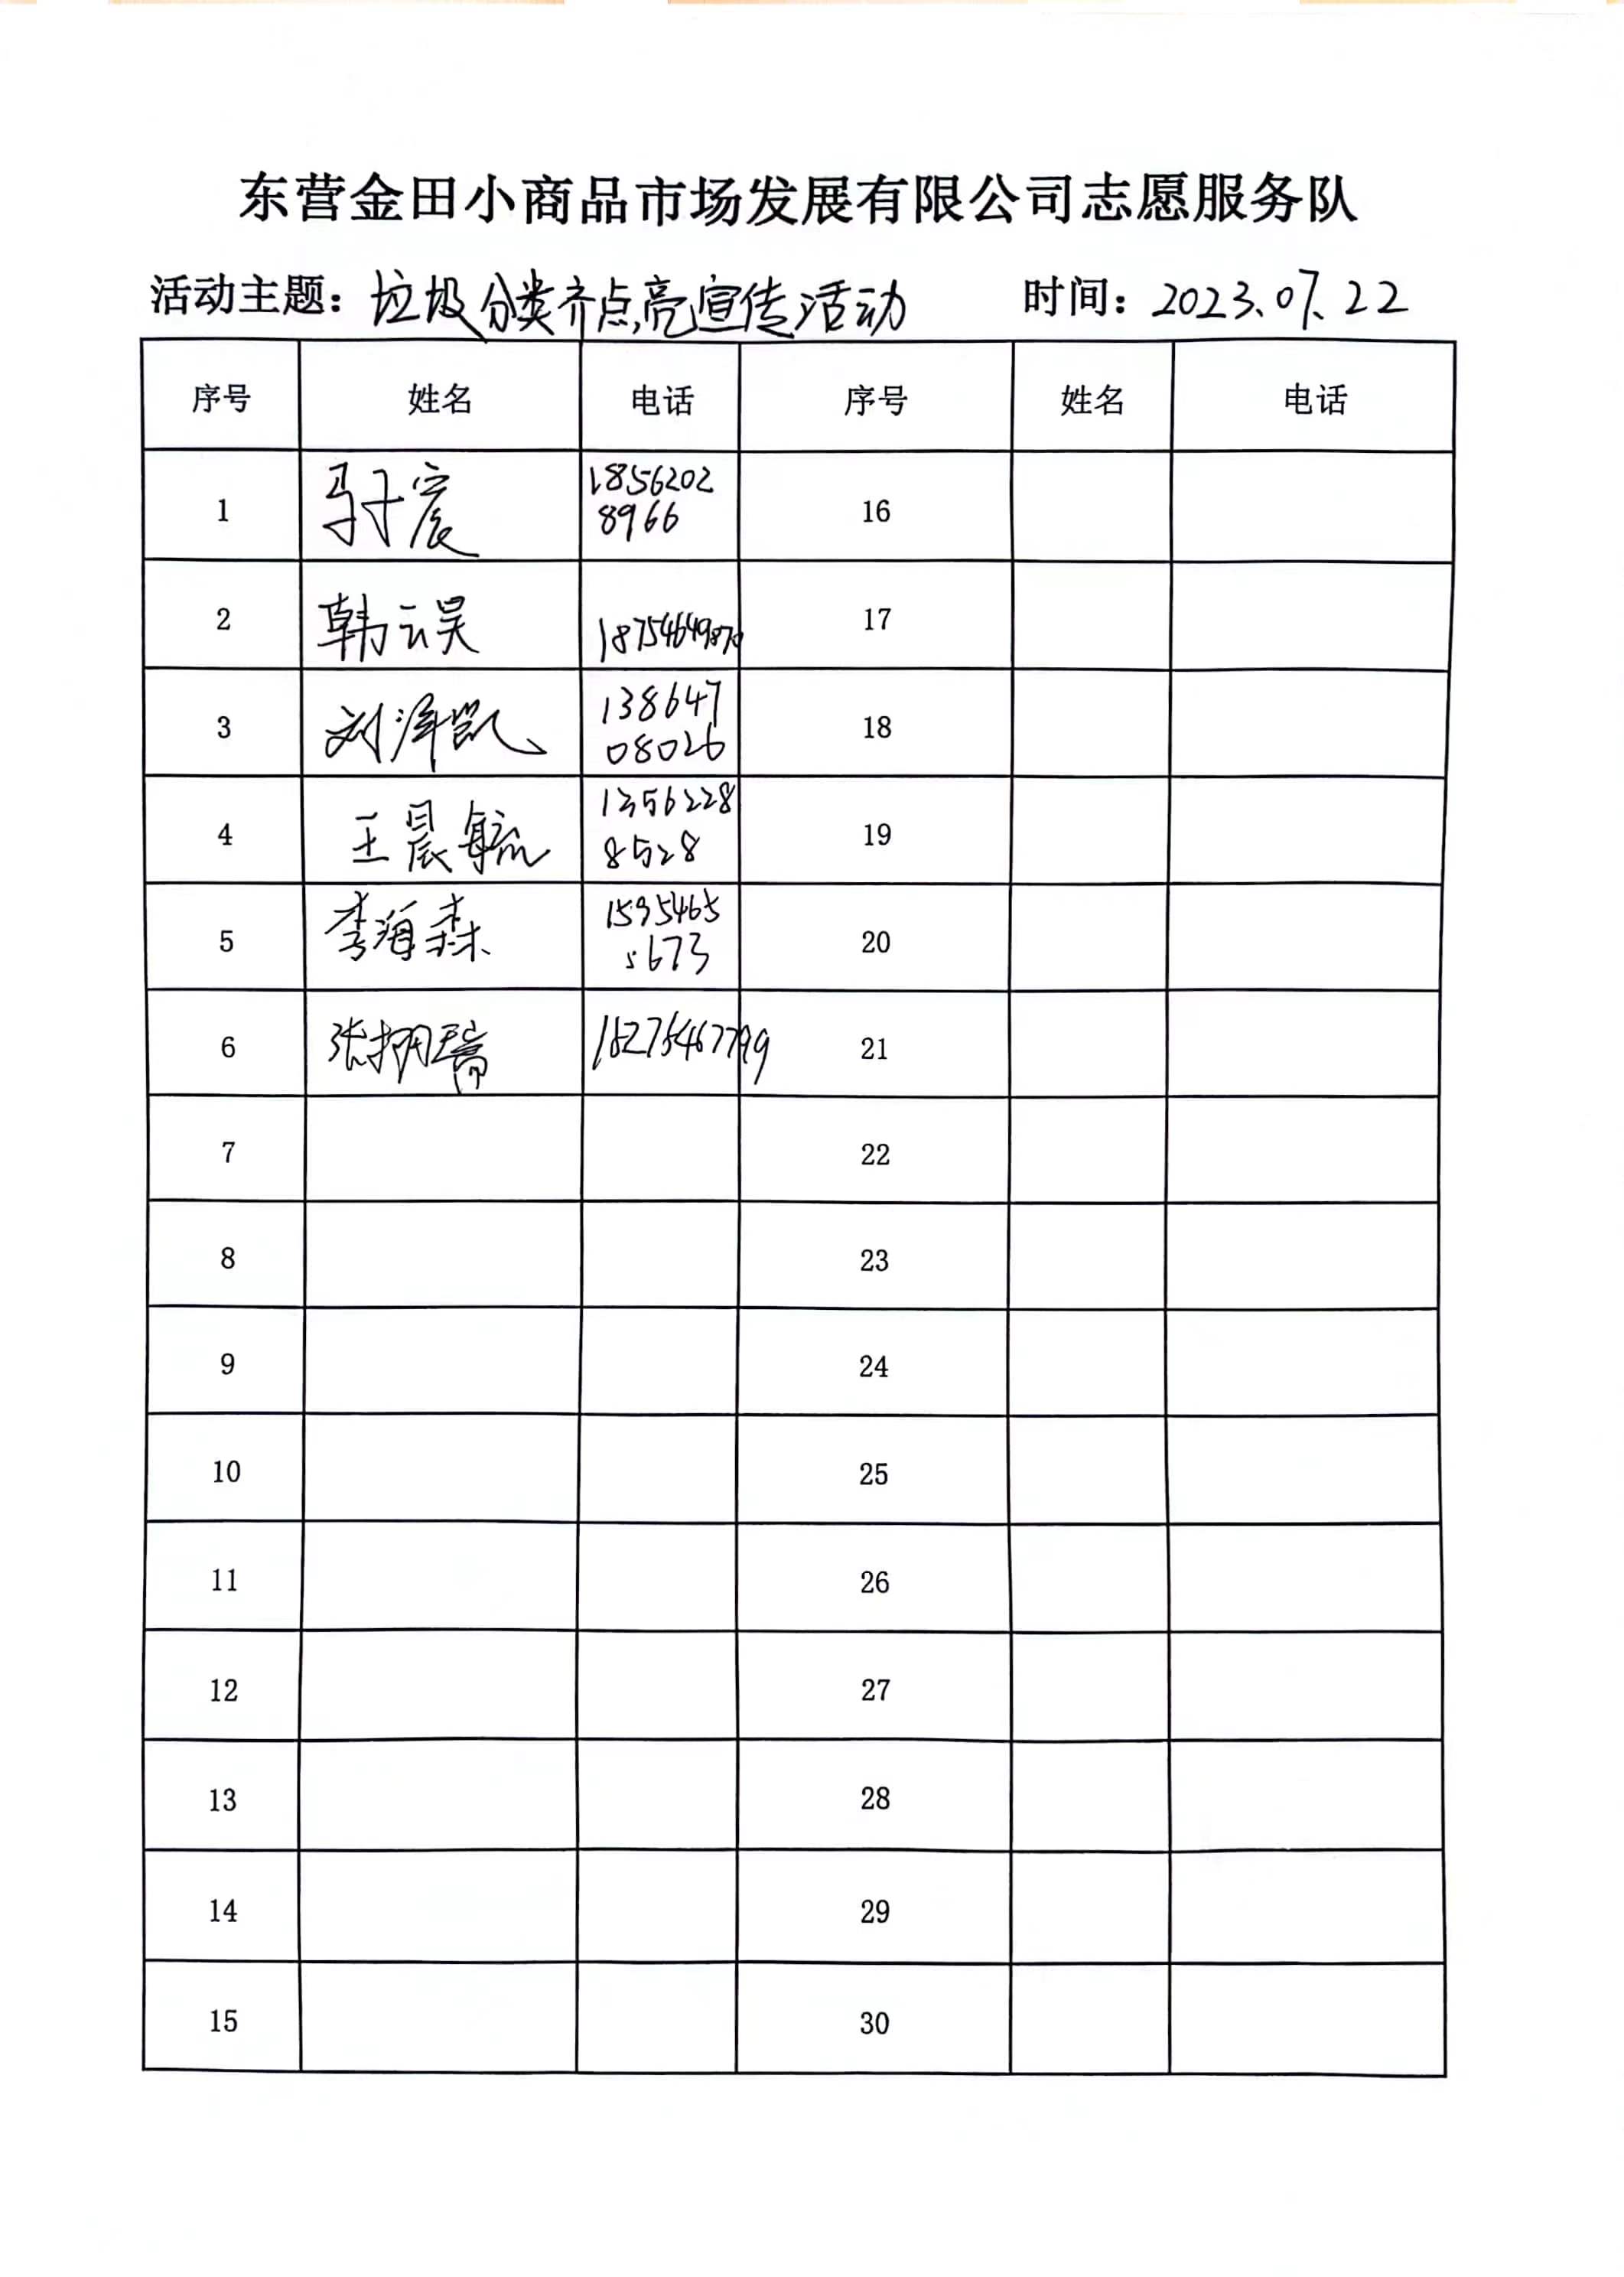 东营金田小商品市场发展有限公司志愿服务队
活动主题：垃圾分类齐点亮宣传活动 时间：2023.07.22
序号 姓名 电话 序号 姓名 电话
1 马子宸 18562028966 16
2 韩云昊 17
3 刘泽凯 13864708026 18
4 王晨毓 13562288528 19
5 李海森 15954655673 20
6 21
7 22
8 23
9 24
10 25
11 26
12 27
13 28
14 29
15 30